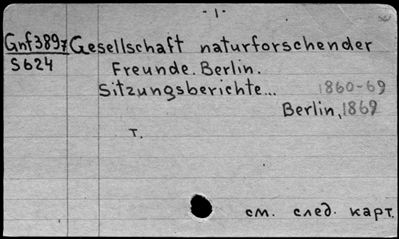 - 1 -
Gnf3897 Gesellschaft naturforschender
S624 Freunde. Berlin.
Sitzungsberichte... 1860-69
Berlin, 1869
т.
см. след. карт.